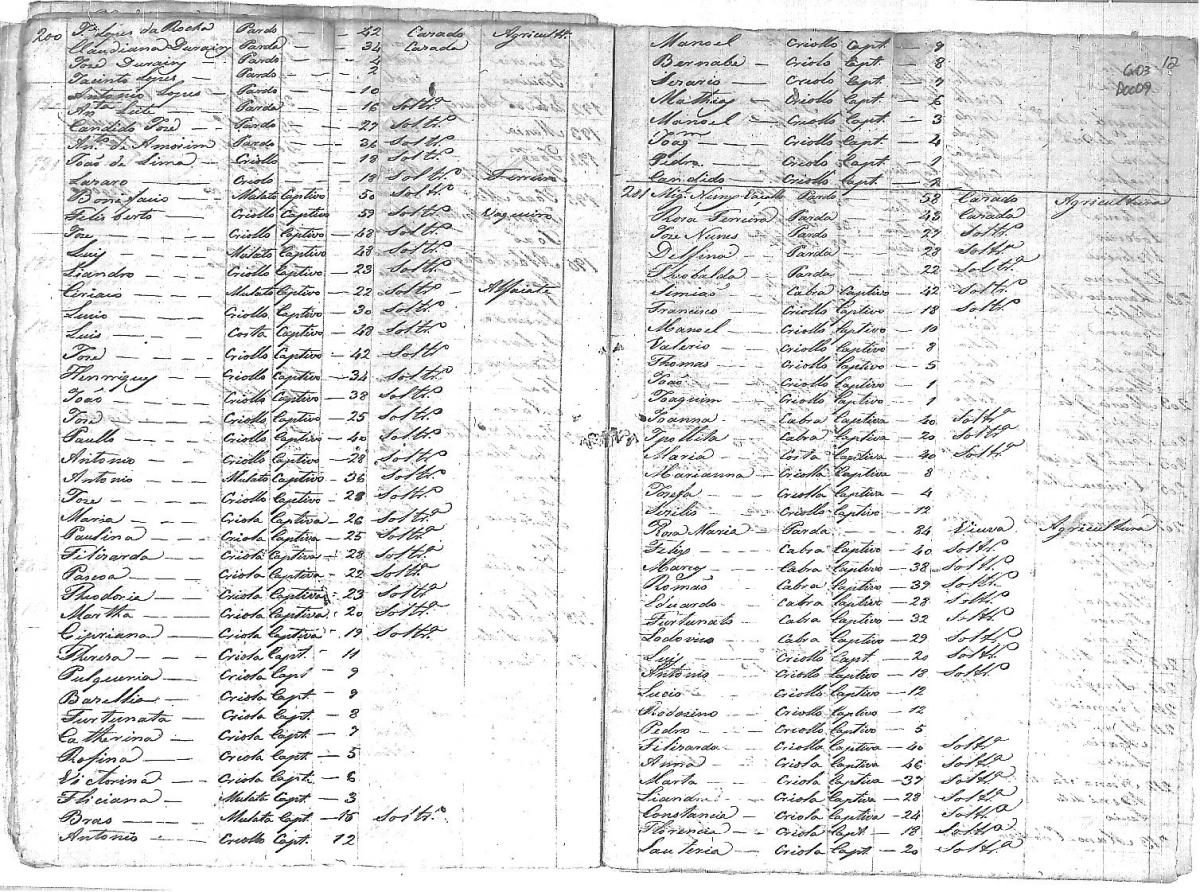 200 Lopes da Rocha Pardo 42 Cazado Agricultr.
Claudiana Pardo 34 Cazada
Joze Pardo 4
Jacinto Lopes Pardo 2
Antonio Lopes Pardo 10
Anta. Leite Parda 16 Soltrª
Candido Joze Pardo 27 Soltrº
Antº. d'Amorim Pardo 36 Soltrº
João de Lima Criollo 18 Soltrº
Lazaro Criolo 18 Soltrº Ferreiro
Bonifacio Mulato Captivo 50 Soltrº
Felisberto Criollo Captivo 59 Soltrº Vaqueiro
Joze Criollo Captivo 48 Soltrº
Luis Mulato Captivo 48 Soltrº
Liandro Criollo Captivo 23 Soltrº
Ciriaco Mulato Captivo 22 Soltrº Alfaiate
Lucio Criollo Captivo 30 Soltrº
Luis Costa Captivo 48 Soltrº
Joze Criollo Captivo 42 Soltrº
Henrriques Criollo Captivo 34 Soltrº
João Criollo Captivo 38 Soltrº
Joze Criollo Captivo 25 Soltrº
Paullo Criollo Captivo 40 Soltrº
Antonio Criollo Captivo 28 Soltrº
Antonio Mulato Captivo 36 Soltrº
Joze Criollo Captivo 28 Soltrº
Maria Criola Captiva 26 Soltrª
Paulina Criola Captiva 25 Soltrª
Filizarda Criola Captiva 28 Soltrª
Pascoa Criola Captiva 22 Soltrª
Theodoria Criola Captiva 23 Soltrª
Martha Criola Captiva 20 Soltrª
Cipriana Criola Captiva 19 Soltrª
Thereza Criola Capt. 11
Pulqueria Criola Capt 9
Bazellia Criola Capt. 9
Furtunata Criola Capt. 8
Catherina Criola Capt. 7
Rofina Criola Capt. 5
Victorina Criola Capt. 6
Fliciana Mulata Capt. 3
Bras Mulato Capt. 15 Soltrº
Antonio Criollo Capt. 12
12
Cx03
Doc09
Manoel Criollo Capt. 9
Bernabe Criolo Capt. 8
Criolo Capt. 7
Mathias Criollo Capt. 6
Manoel Criollo Capt. 3
Joaqm Criollo Capt. 4
Pedro Criollo Capt. 1
Candido Criollo Capt. 2
201 Nunes Pardo 58 Cazado Agricultura
Flora Ferreira Parda 43 Cazada
Joze Nunes Pardo 27 Soltrº
Delfina Parda 28 Soltrª
Theobalda Parda 22 Soltrª
Simião Cabra Captivo 42 Soltrº
Francisco Criollo Captivo 18 Soltrº
Manoel Criollo Captivo 10
Valerio Criollo Captivo 8
Thomas Criollo Captivo 5
João Criollo Captivo 1
Joaquim Criollo Captivo 1
Joanna Cabra Captiva 40 Soltrª
Ipollita Cabra Captiva 20 Soltrª
Maria Costa Captiva 40 Soltrª
Marianna Criolla Captiva 8
Jozefa Criolla Captiva 4
Criollo Captivo 12
Roza Maria Parda 84 Viuva Agricultura
Felis Cabra Captivo 40 Soltrº
Marcos Cabra Captivo 38 Soltrº
Romão Cabra Captivo 39 Soltrº
Eduardo Cabra Captivo 28 Soltrº
Furtunato Cabra Captivo 32 Soltrº
Lodovico Cabra Captivo 29 Soltrº
Luis Criollo Capt. 20 Soltrº
Antonio Criollo Captivo 18 Soltrº
Lucio Criollo Captivo 12
Criollo Captivo 12
Pedro Criollo Captivo 5
Filizarda Criolla Captiva 40 Soltrª
Anna Criola Captiva 46 Soltrª
Marta Criola Captiva 37 Soltrª
Liandra Criolla Captiva 28 Soltrª
Constancia Criola Captiva 24 Soltrª
Florencia Criola Capt. 18 Soltrª
Lauteria Criola Capt. 20 Soltrª